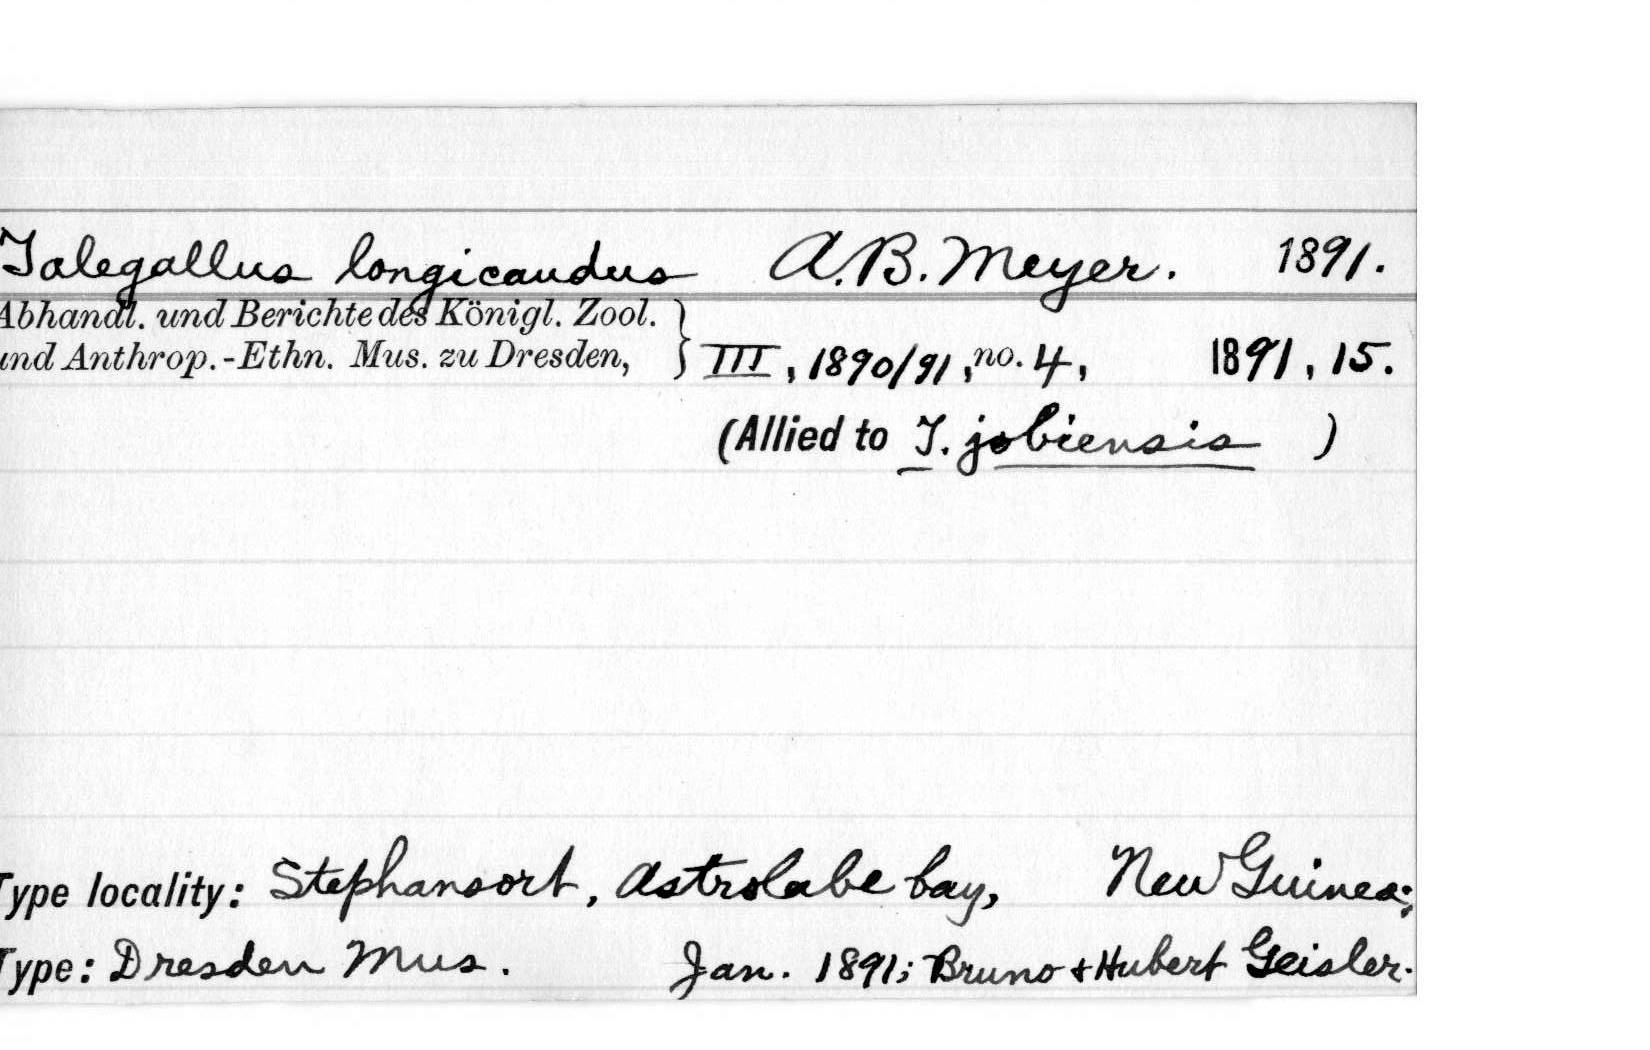 Talegallus longicaudus A.B. Meyer. 1891.
Abhandl. und Berichte des Königl. Zool.
und Anthrop.-Ethn. Mus. zu Dresden, } III, 1890/91, no. 4, 1891, 15.
(Allied to T. jobiensis )
Type locality: Stephansort, Astrolabe bay, New Guinea;
Type: Dresden Mus. Jan. 1891; Bruno + Hubert Geisler.